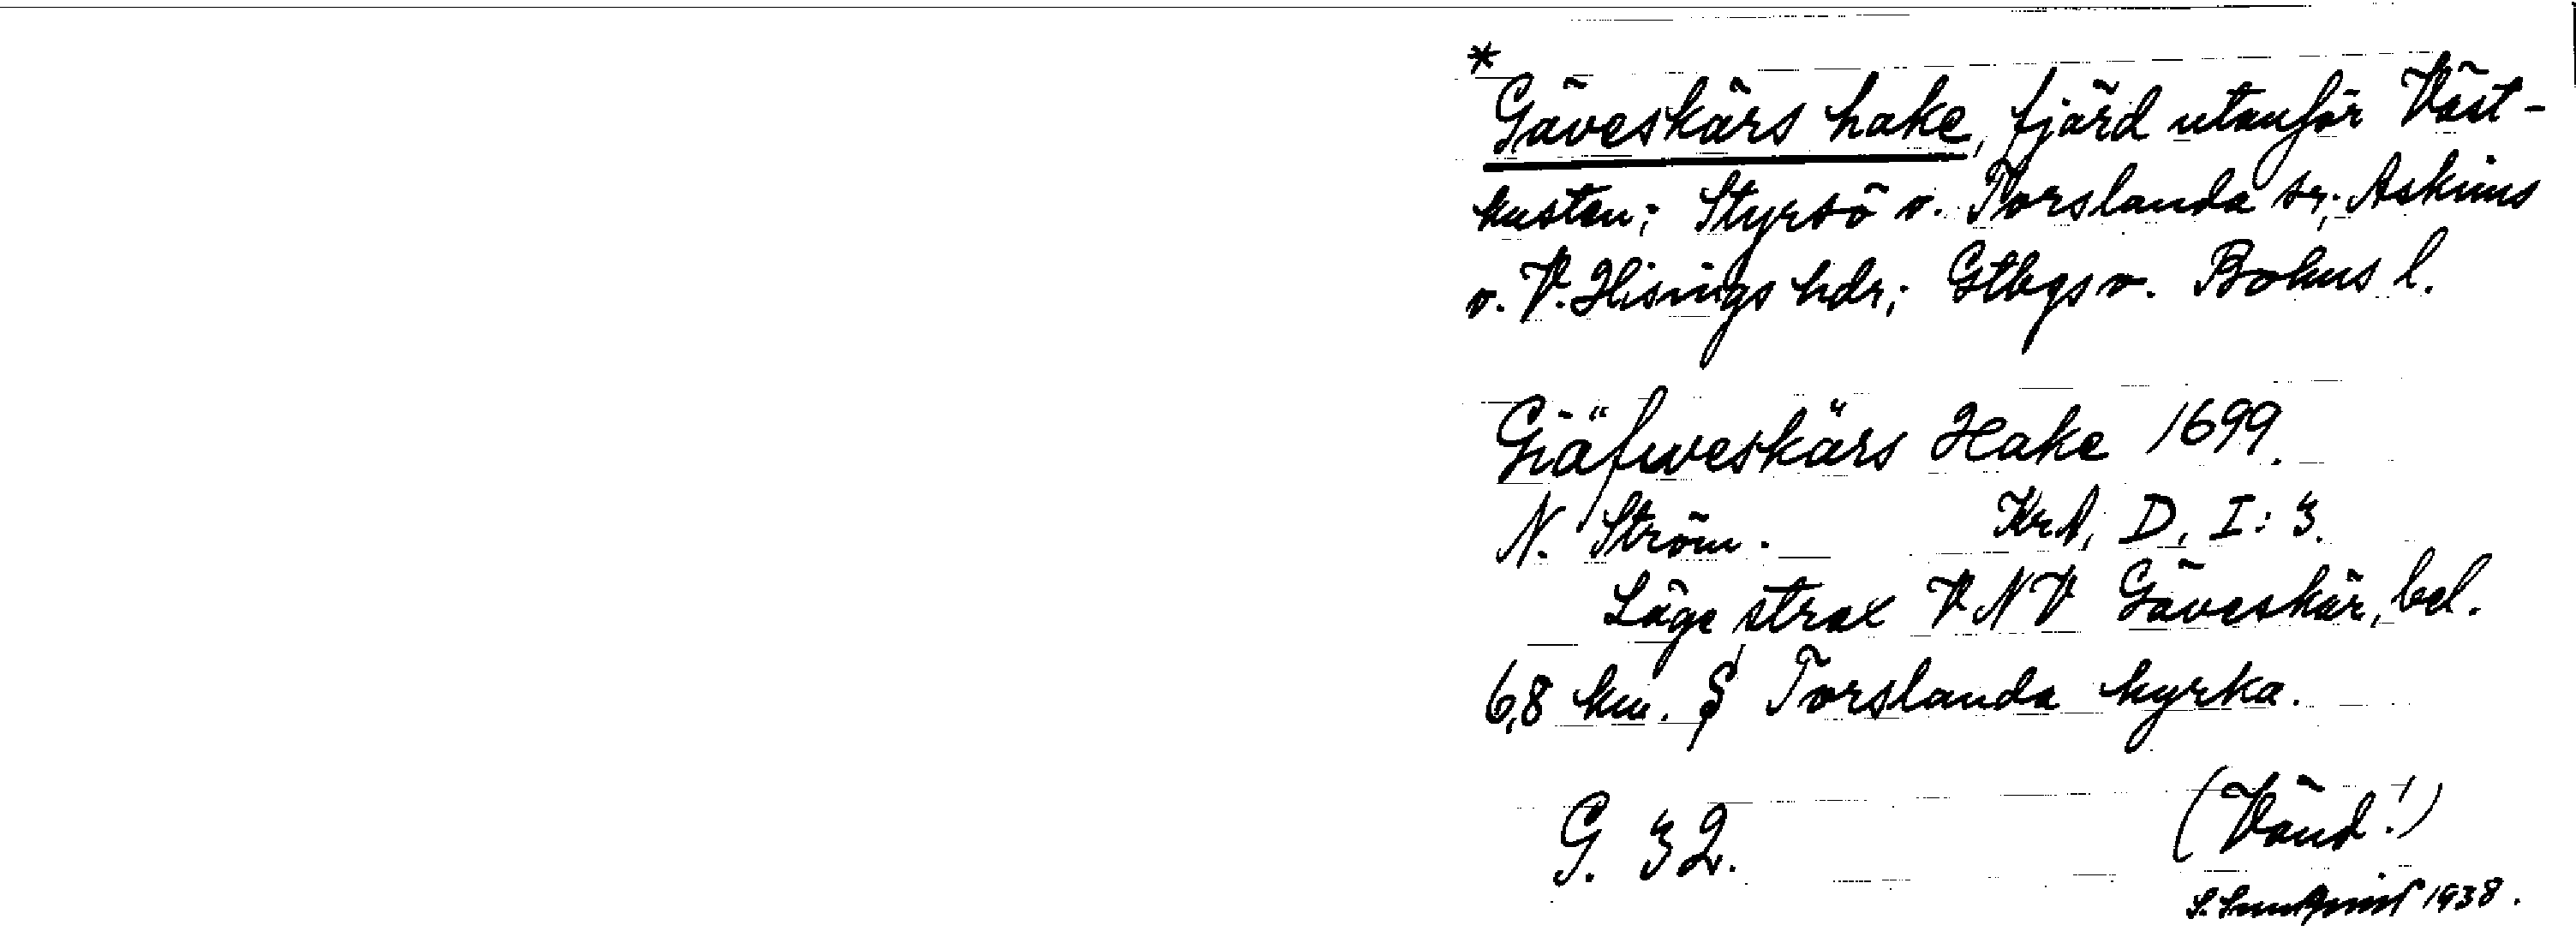 *
Gäveskärs hake, fjärd utanför Väst-
kusten; Styrsö o. Torslanda sr; Askims
o. V. Hisings hdr; Gtbgs o. Bohus l.
Giäfweskärs Hake 1699.
N. Ström. KrA, D, I: 3.
Läge strax VNV Gäveskär, bel.
6,8 km. S Torslanda kyrka.
G. 32. (Vänd!)
1938.